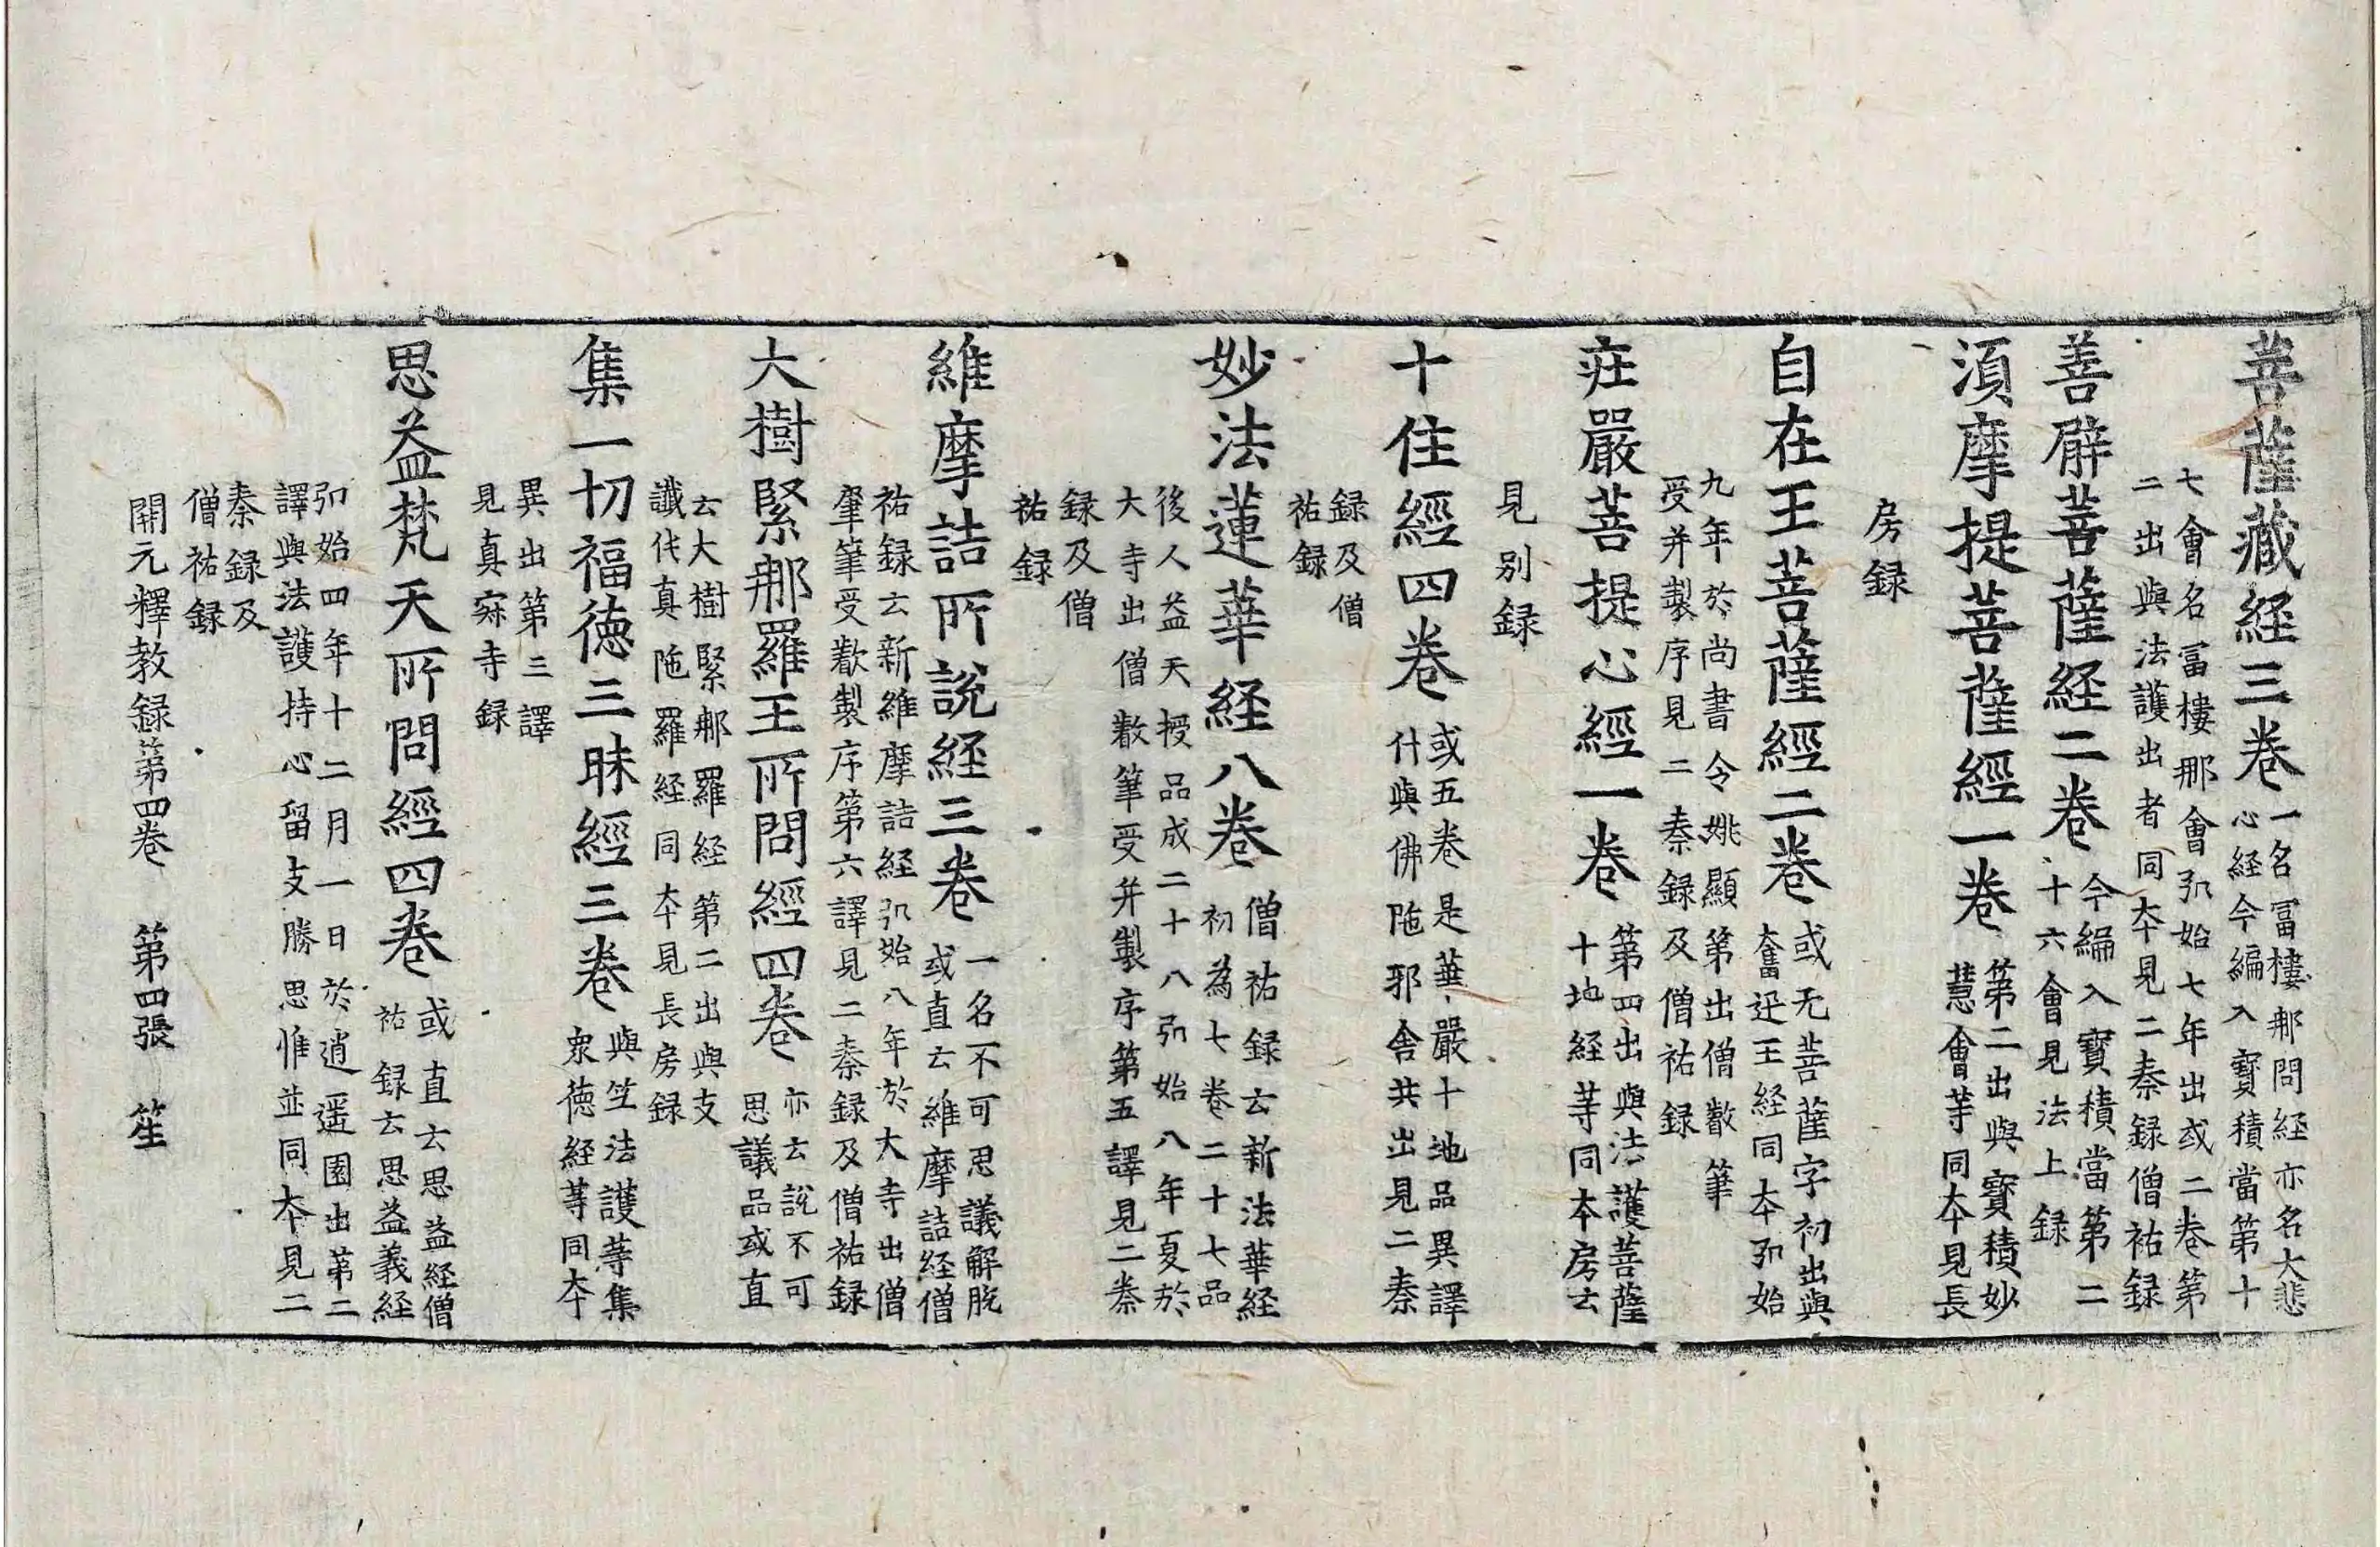 菩薩藏経三卷一名冨樓那問経亦名大悲
心経今編入寶積當第十
七會名冨樓那會弘始七年出或二卷第
二出與法護出者同本見二秦録僧祐録
善臂菩薩経二卷今編入寶積當第二
十六會見法上録
須摩提菩薩經一卷第二出與寶積妙
慧會等同本見長
房録
自在王菩薩經二卷或无菩薩字初出與
奮迅王経同本弘始
九年於尚書令姚顯第出僧叡筆
受并製序見二秦録及僧祐録
莊嚴菩提心經一卷第四出與法護菩薩
十地経等同本房云
見別録
十住經四卷或五卷是華嚴十地品異譯
什與佛陁耶舍共出見二秦
録及僧
祐録
妙法蓮華経八卷僧祐録云新法華経
初為七卷二十七品
後人益天授品成二十八弘始八年夏於
大寺出僧叡筆受并製序第五譯見二秦
録及僧
祐録
維摩詰所說経三卷一名不可思議解脫
或直云維摩詰経僧
祐録云新維摩詰経弘始八年於大寺出僧
肇筆受叡製序第六譯見二秦録及僧祐録
大樹緊那羅王所問經四卷亦云說不可
思議品或直
云大樹緊那羅経第二出與支
讖伅真陁羅経同本見長房録
集一切福德三昧經三卷與竺法護等集
衆德経等同本
異出第三譯
見真寂寺録
思益梵天所問經四卷或直云思益経僧
祐録云思益義経
弘始四年十二月一日於逍遥園出第二
譯與法護持心留支勝思惟並同本見二
秦録及
僧祐録
開元釋教録第四卷　第四張　笙